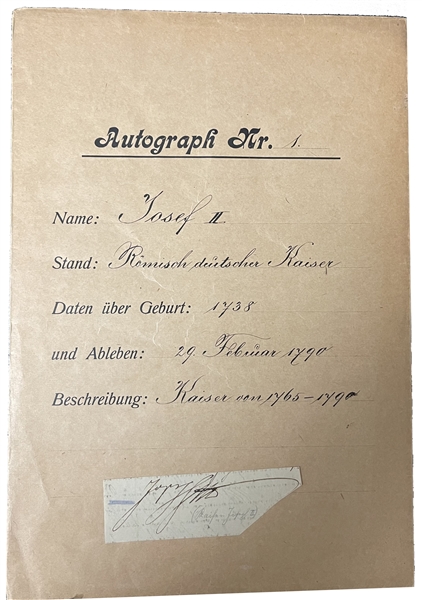 Autograph Nr. 1.
Name: Josef II
Stand: Römisch deutscher Kaiser
Daten über Geburt: 1738
und Ableben: 29. Februar 1790
Beschreibung: Kaiser von 1765-1790
Joseph
(Kaiser Josef II)